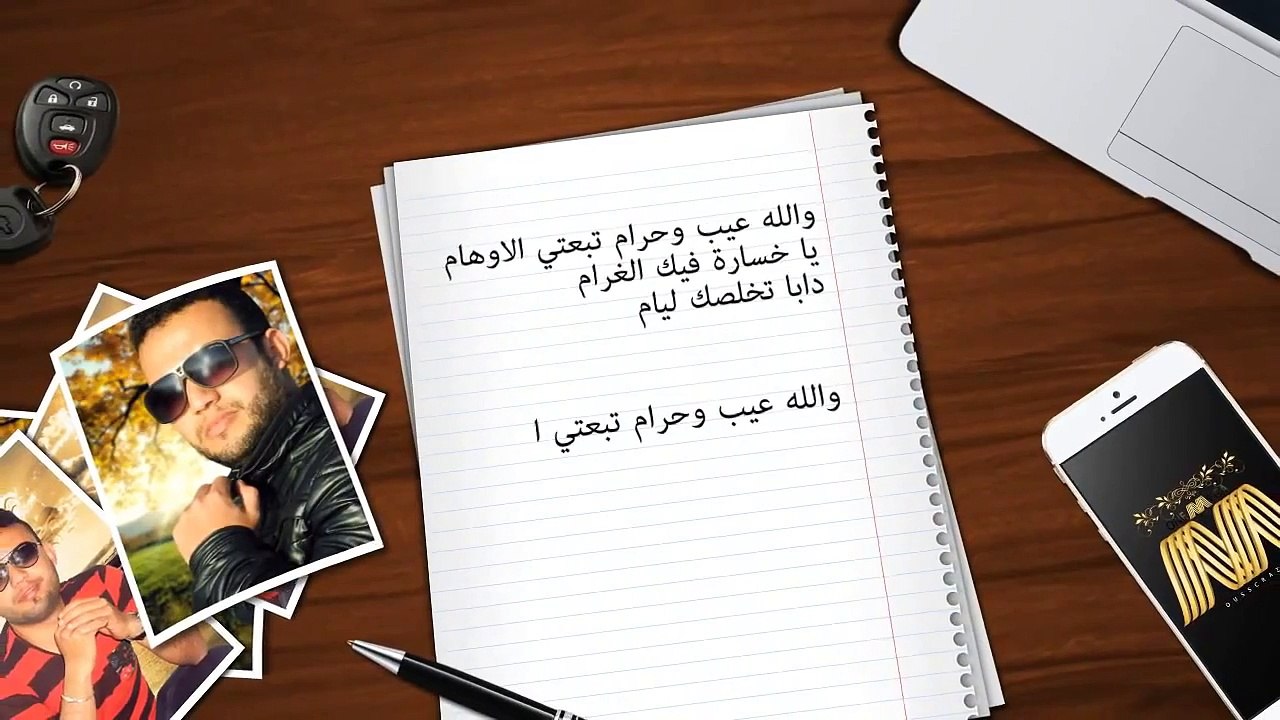 والله عيب وحرام تبعتي الاوهام
يا خسارة فيك الغرام
دابا تخلصك ليام
والله عيب وحرام تبعتي ا
OUSSCRAZ